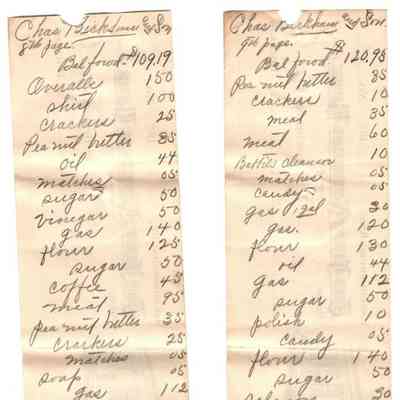 Chas Bickham
8th page.
Bal forwd $109.19
Overalls 150
shirt 100
crackers 25
Pea nut butter 85
oil 44
matches 05
sugar 50
vinegar 50
gas 140
flour 125
sugar 50
coffee 45
meat 95
pea nut butter 35
crackers 25
matches 05
soap 05
gas 112
Chas Bickham
9th page. $
Bal forwd 120,95
Pea nut butter 85
crackers 10
meat 35
meat 60
Bottle cleaner 10
matches 05
candy 05
gas 1 gal 30
gas. 120
flour 130
oil 44
gas 112
sugar 50
polish 10
candy 05
flour 140
sugar 50
30